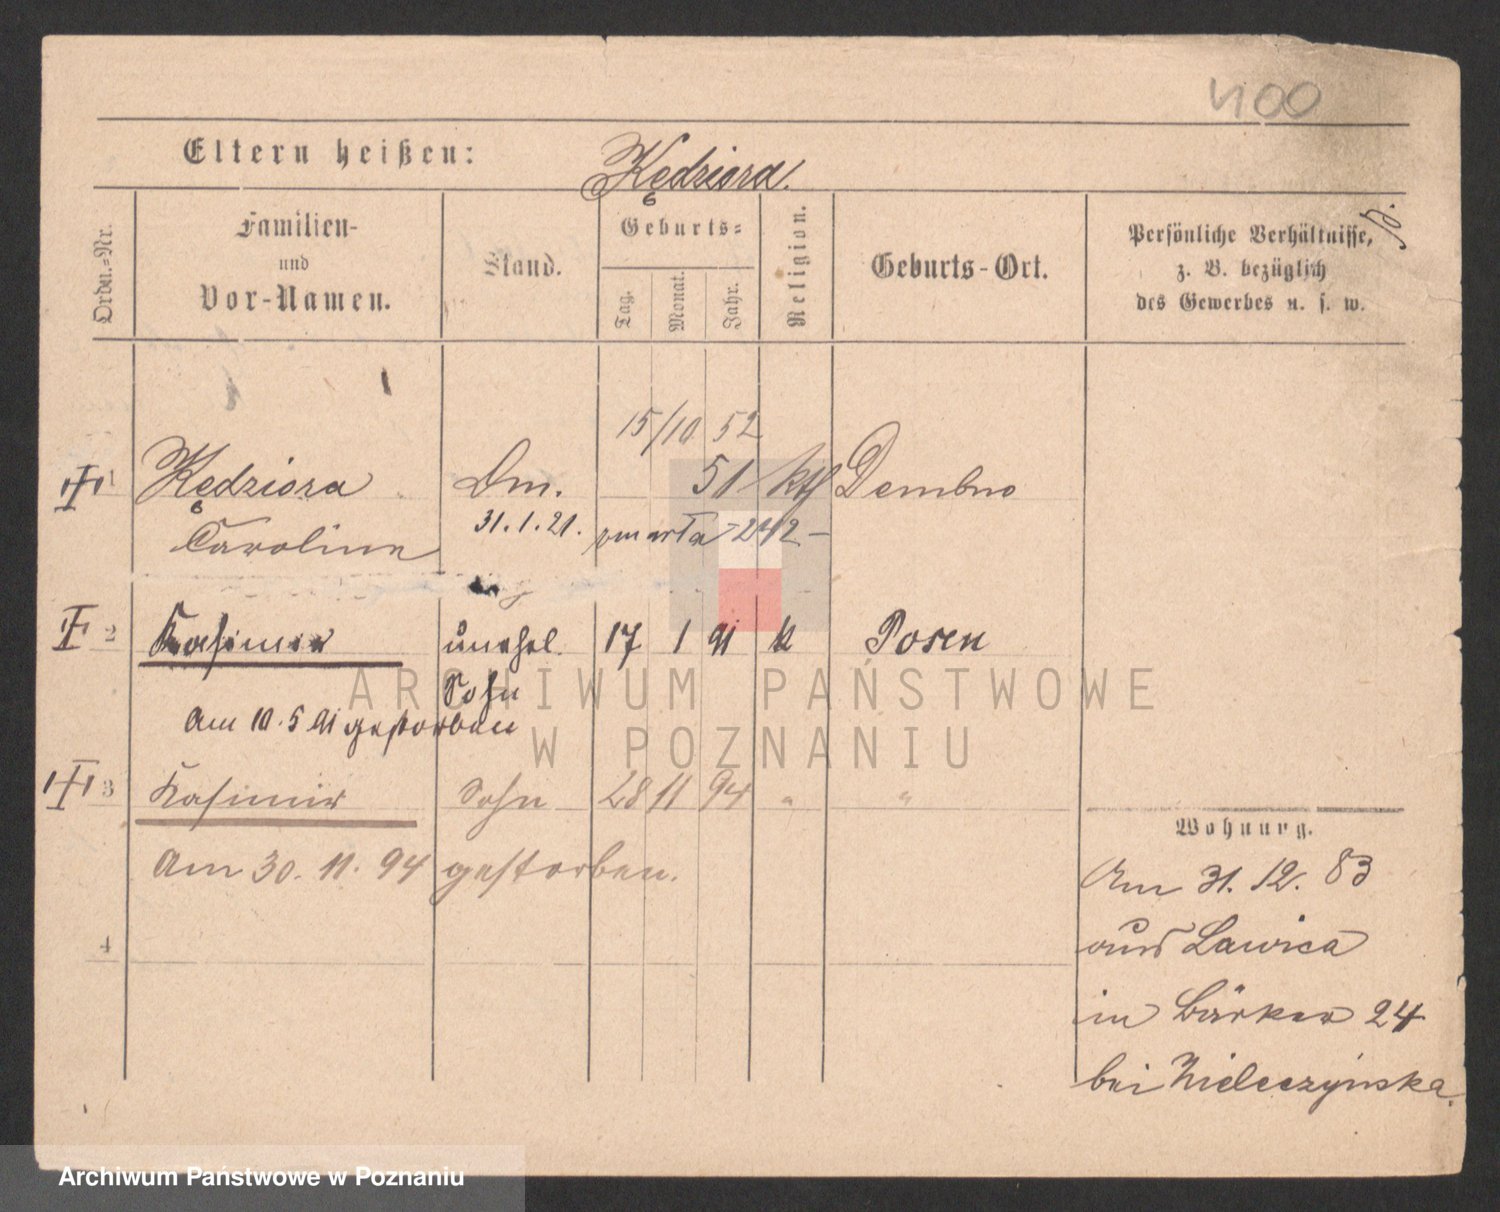 400
Eltern heißen: Kędziora.
Orden.=Nr.
Familien-
und
Vor-Namen.
Stand.
Geburts=
Tag.
Monat.
Jahr.
Religion.
Geburts-Ort.
Persönliche Verhältnisse,
z. B. bezüglich
des Gewerbes u. s. w.
15/10 52
1 Kędziora Dm. 51 kth Dembno
Caroline 31.1.21. zmarła - 242 -
2 Kasimir unehel. 17 1 91 k Posen
Sohn
Am 10.5 91 gestorben
3 Kasimir Sohn 28 11 94 " "
Wohnung.
Am 30.11.94 gestorben.
4
Am 31.12.83
aus Lawica
in Bäcker 24
bei Nieleczyńska.
ARCHIWUM PAŃSTWOWE
W POZNANIU
Archiwum Państwowe w Poznaniu